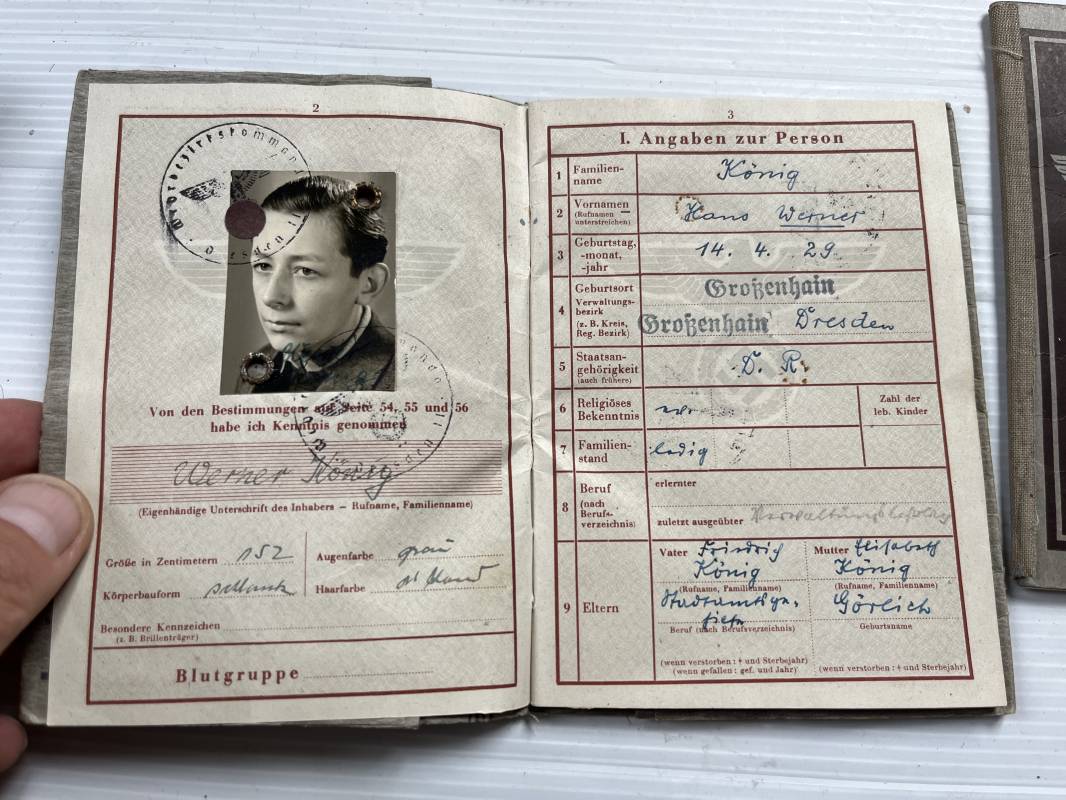 2
Von den Bestimmungen auf Seite 54, 55 und 56
habe ich Kenntnis genommen
Werner König
(Eigenhändige Unterschrift des Inhabers — Rufname, Familienname)
Größe in Zentimetern 152
Augenfarbe grau
Körperbauform schlank
Haarfarbe
Besondere Kennzeichen
(z. B. Brillenträger)
Blutgruppe
3
I. Angaben zur Person
1 Familien-
name
König
2 Vornamen
(Rufnamen
unterstreichen)
Hans Werner
3 Geburtstag,
-monat,
-jahr
14. 4. 29
4 Geburtsort
Verwaltungs-
bezirk
(z. B. Kreis,
Reg. Bezirk)
Großenhain
Großenhain Dresden
5 Staatsan-
gehörigkeit
(auch frühere)
D. R.
6 Religiöses
Bekenntnis
Zahl der
leb. Kinder
7 Familien-
stand
ledig
8 Beruf
(nach
Berufs-
verzeichnis)
erlernter
zuletzt ausgeübter
9 Eltern
Vater Friedrich
König
(Rufname, Familienname)
Beruf (nach Berufsverzeichnis)
(wenn verstorben: ‡ und Sterbejahr)
(wenn gefallen: gef. und Jahr)
Mutter Elisabeth
König
(Rufname, Familienname)
Görlich
Geburtsname
(wenn verstorben: ‡ und Sterbejahr)